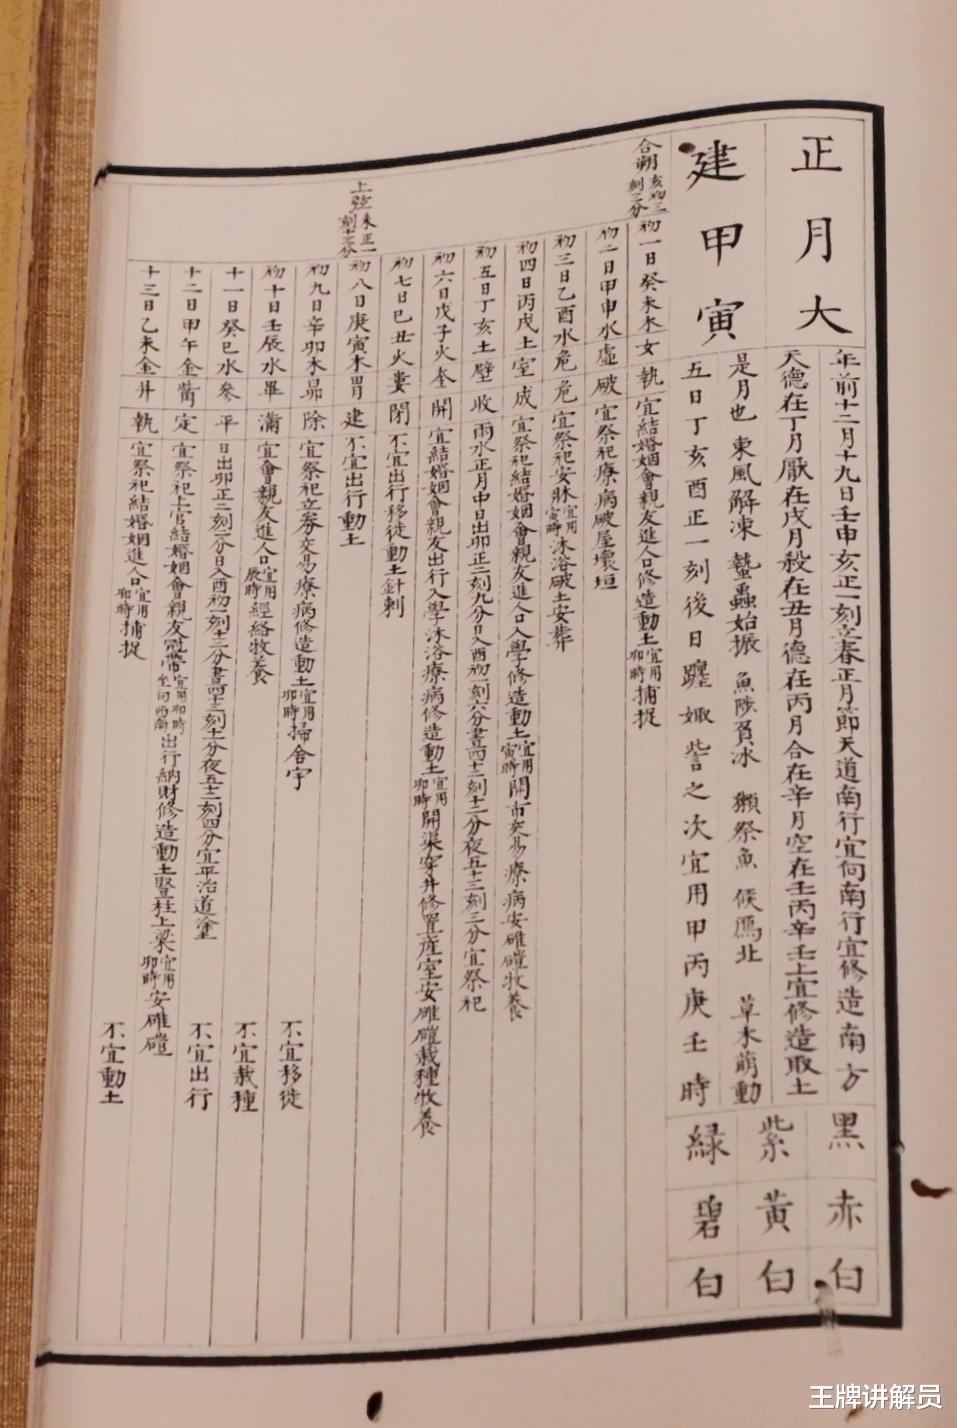 正月大
建甲寅
年前十二月十九日壬申亥正一刻立春正月節天道南行宜向南行宜修造南方
天德在丁月厭在戌月殺在丑月德在丙月合在辛月空在壬丙辛壬上宜修造取土
是月也東風解凍 蟄蟲始振 魚陟負冰 獺祭魚 候鴈北 草木萌動
五日丁亥酉正一刻後日躔娵訾之次宜用甲丙庚壬時
黑赤白
紫黃白
綠碧白
合朔亥初三刻三分
初一日癸未木女執宜結婚姻會親友進人口修造動土宜用卯時捕捉
初二日甲申水虛破宜祭祀療病破屋壞垣
初三日乙酉水危危宜祭祀安牀宜用寅時沐浴破土安葬
初四日丙戌土室成宜祭祀結婚姻會親友進人口入學修造動土宜用寅時開市交易療病安碓磑牧養
初五日丁亥土壁收雨水正月中日出卯正二刻九分日入酉初一刻六分晝四十二刻十二分夜五十三刻三分宜祭祀
初六日戊子火奎開宜結婚姻會親友出行入學沐浴療病修造動土宜用卯時開渠穿井修置產室安碓磑栽種牧養
初七日己丑火婁閉不宜出行移徙動土針刺
上弦未正一刻十二分
初八日庚寅木胃建不宜出行動土
初九日辛卯木昴除宜祭祀立券交易療病修造動土宜用卯時掃舍宇 不宜移徙
初十日壬辰水畢滿宜會親友進人口宜用辰時經絡牧養 不宜栽種
十一日癸巳水參平日出卯正二刻二分日入酉初一刻十三分晝四十三刻十一分夜五十二刻四分宜平治道塗
十二日甲午金觜定宜祭祀上官結婚姻會親友冠帶宜用卯時坐向西南出行納財修造動土豎柱上梁宜用卯時安碓磑 不宜出行
十三日乙未金井執宜祭祀結婚姻進人口宜用卯時捕捉 不宜動土
王牌讲解员